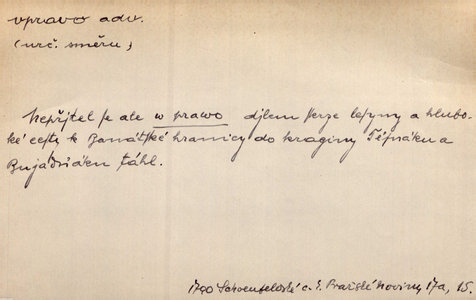 vpravo adv.
(urč. směru)
Nepřjtel se ale w prawo djlem skrze lesyny a hlubo-
ké cesty k Banátské hranicy do kraginy Těfnáku a
táhl.
1790 Schoenfeldské c. k. Pražské Noviny 17a, 15.